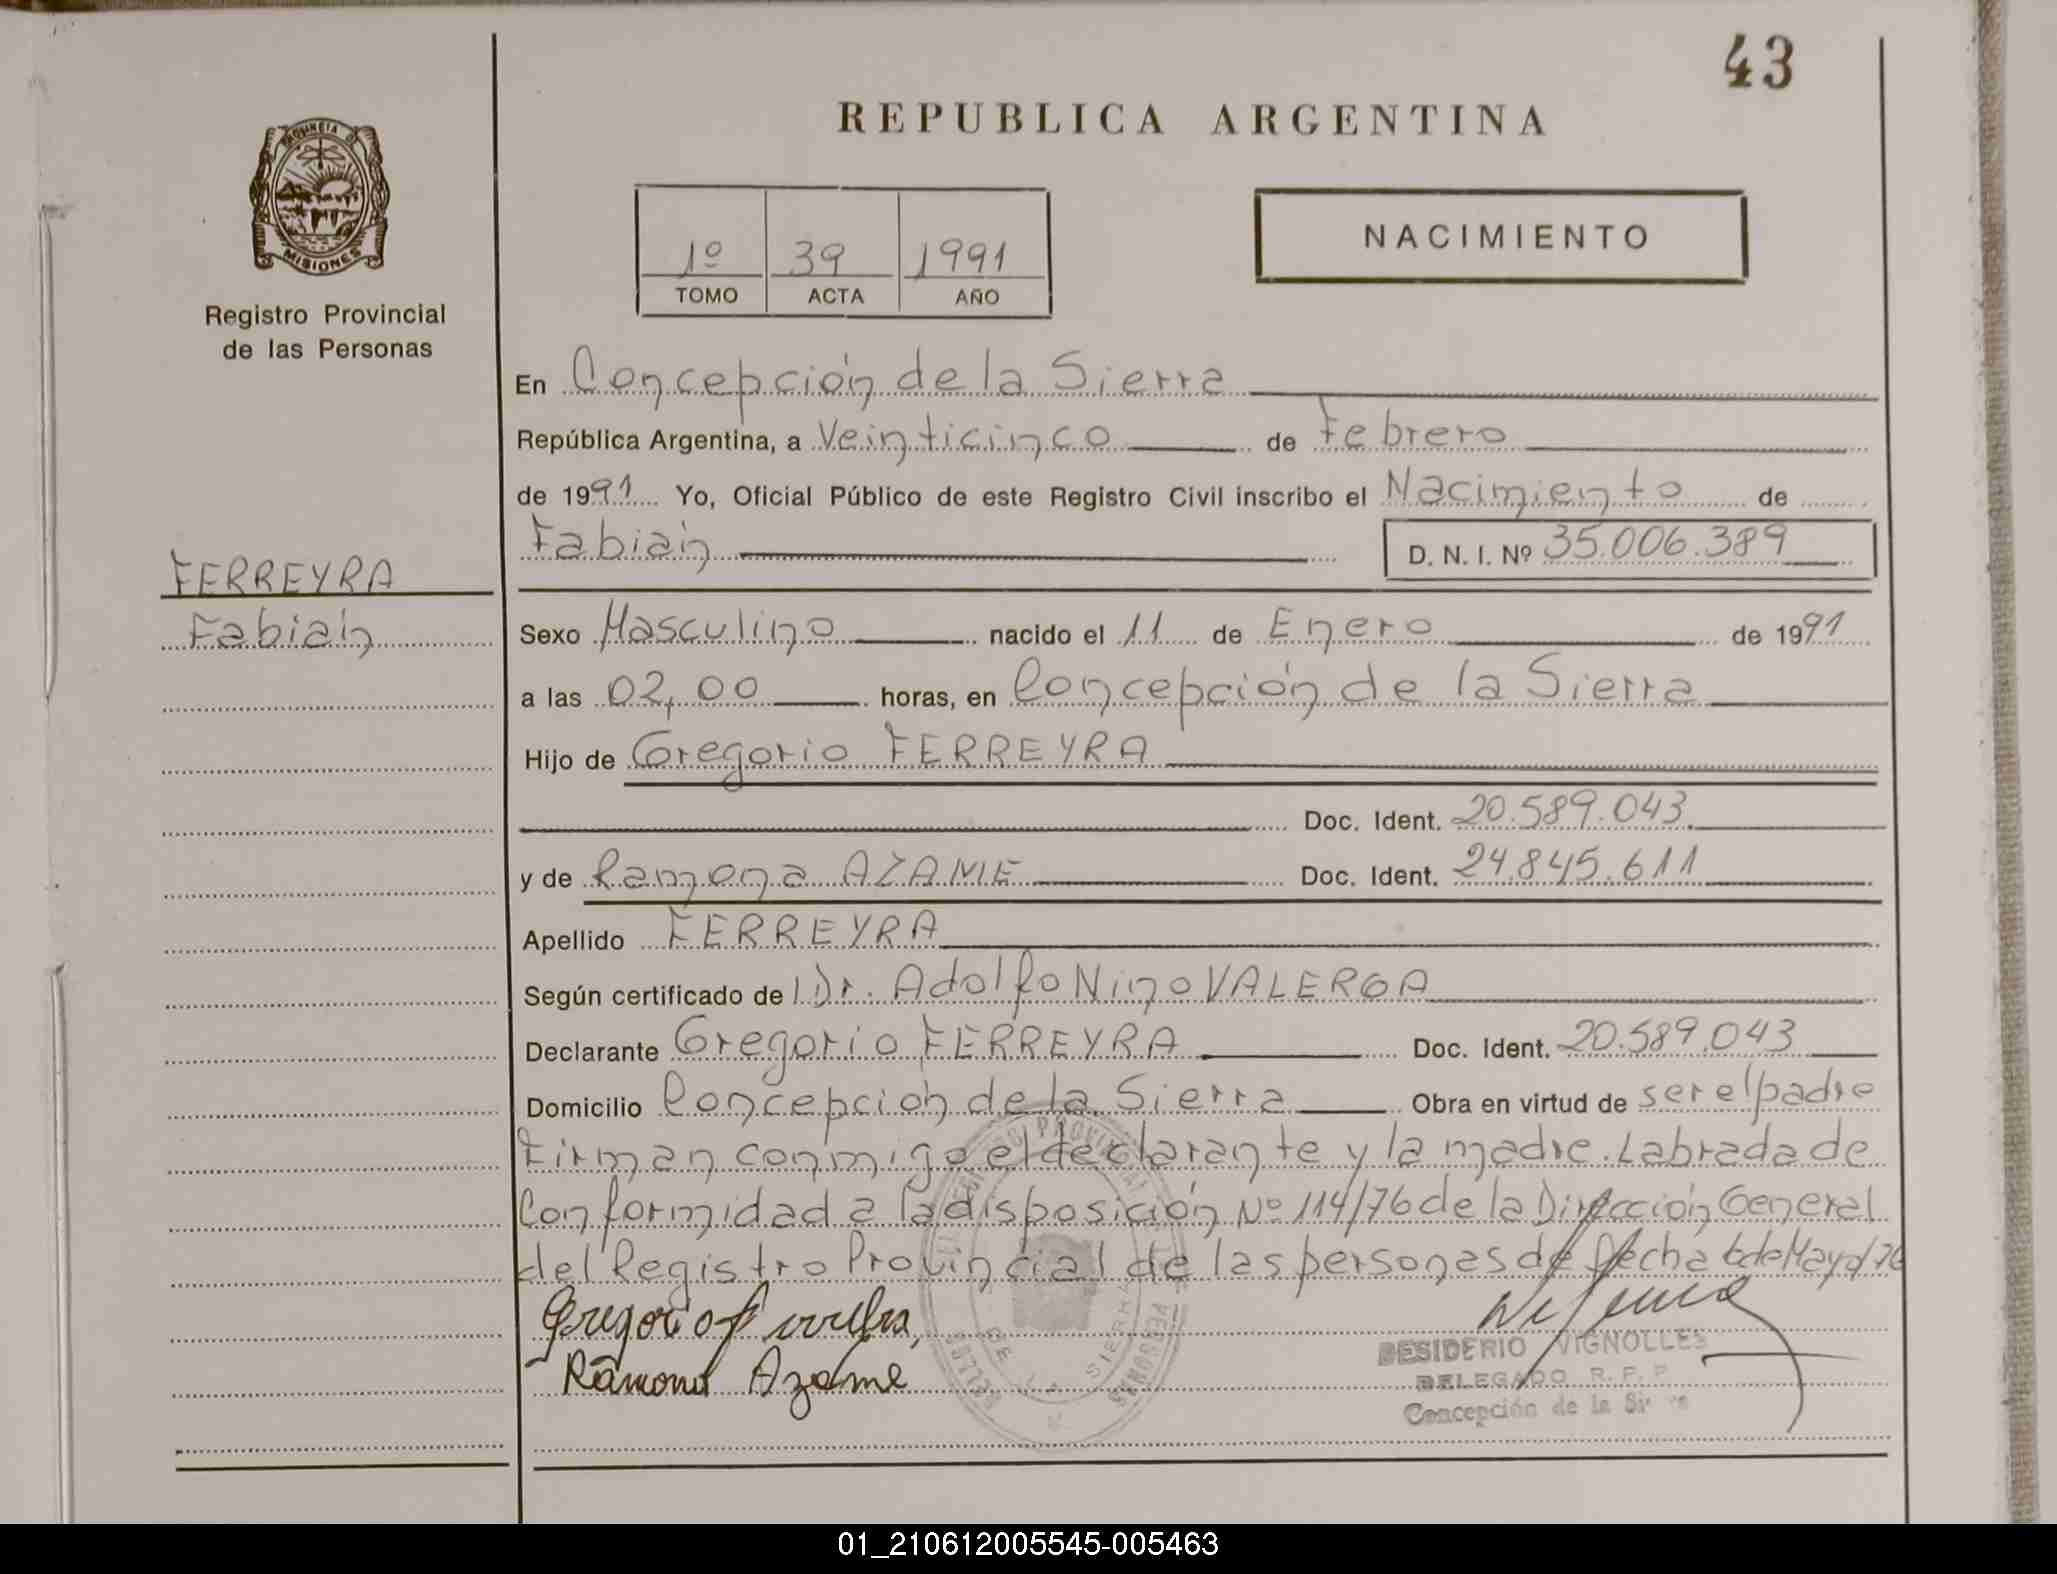 43
REPUBLICA ARGENTINA
PROVINCIA DE
MISIONES
Registro Provincial
de las Personas
1º 39 1991
TOMO ACTA AÑO
NACIMIENTO
En Concepción de la Sierra
República Argentina, a Veinticinco de Febrero
de 1991 Yo, Oficial Público de este Registro Civil inscribo el Nacimiento de
Fabián D. N. I. Nº 35.006.389
FERREYRA
Fabián
Sexo Masculino nacido el 11 de Enero de 1991
a las 02,00 horas, en Concepción de la Sierra
Hijo de Gregorio FERREYRA
Doc. Ident. 20.589.043
y de Ramona AZAME Doc. Ident. 24.845.611
Apellido FERREYRA
Según certificado de Dr. Adolfo Nino VALERGA
Declarante Gregorio FERREYRA Doc. Ident. 20.589.043
Domicilio Concepción de la Sierra Obra en virtud de ser el padre
Firman conmigo el declarante y la madre. Labrada de
Conformidad a la disposición Nº 114/76 de la Dirección General
del Registro Provincial de las personas de fecha 6 de Mayo/76
Gregorio Ferreyra
Ramona Azame
DESIDERIO VIGNOLLES
DELEGADO R. P. P.
Concepción de la Sierra
01_210612005545-005463